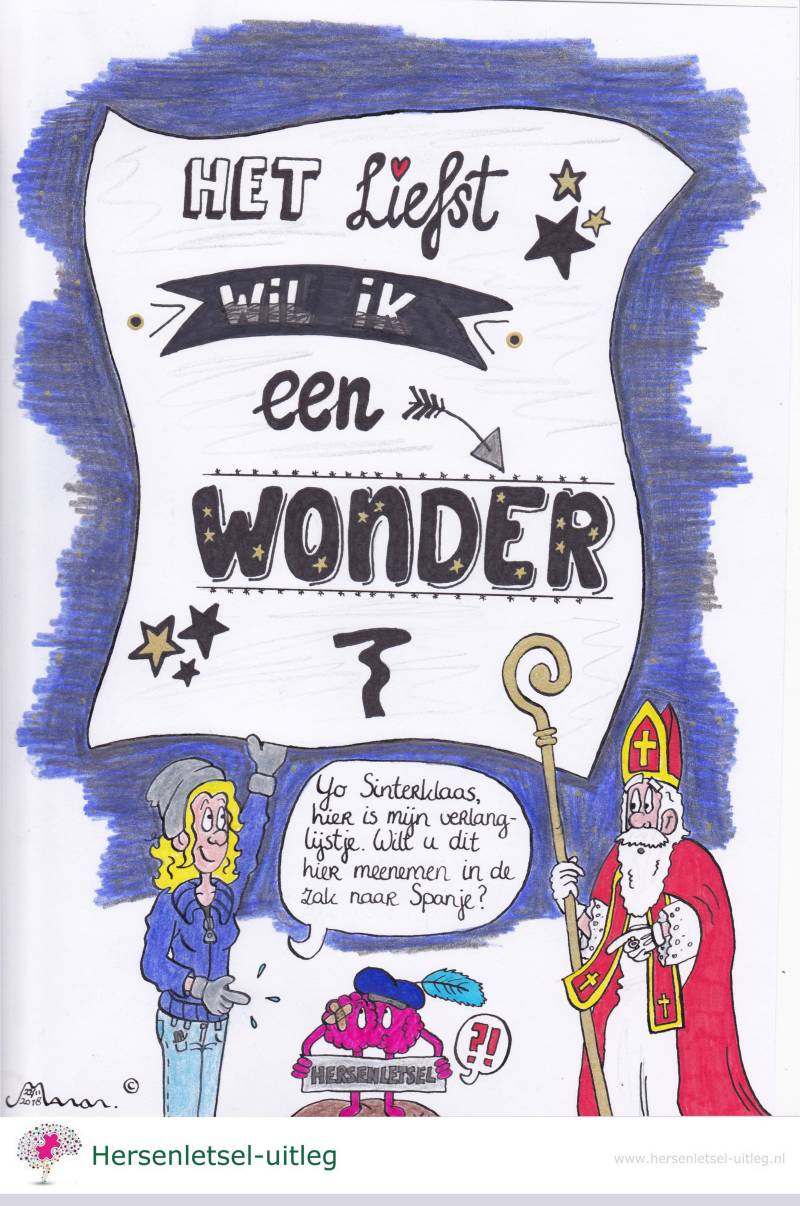 HET Liefst
Will ik
een
WONDER
Yo Sinterklaas,
hier is mijn verlang-
lijstje. Wilt u dit
hier meenemen in de
zak naar Spanje?
?!
HERSENLETSEL
22/11
2018
©
Hersenletsel-uitleg
www.hersenletsel-uitleg.nl